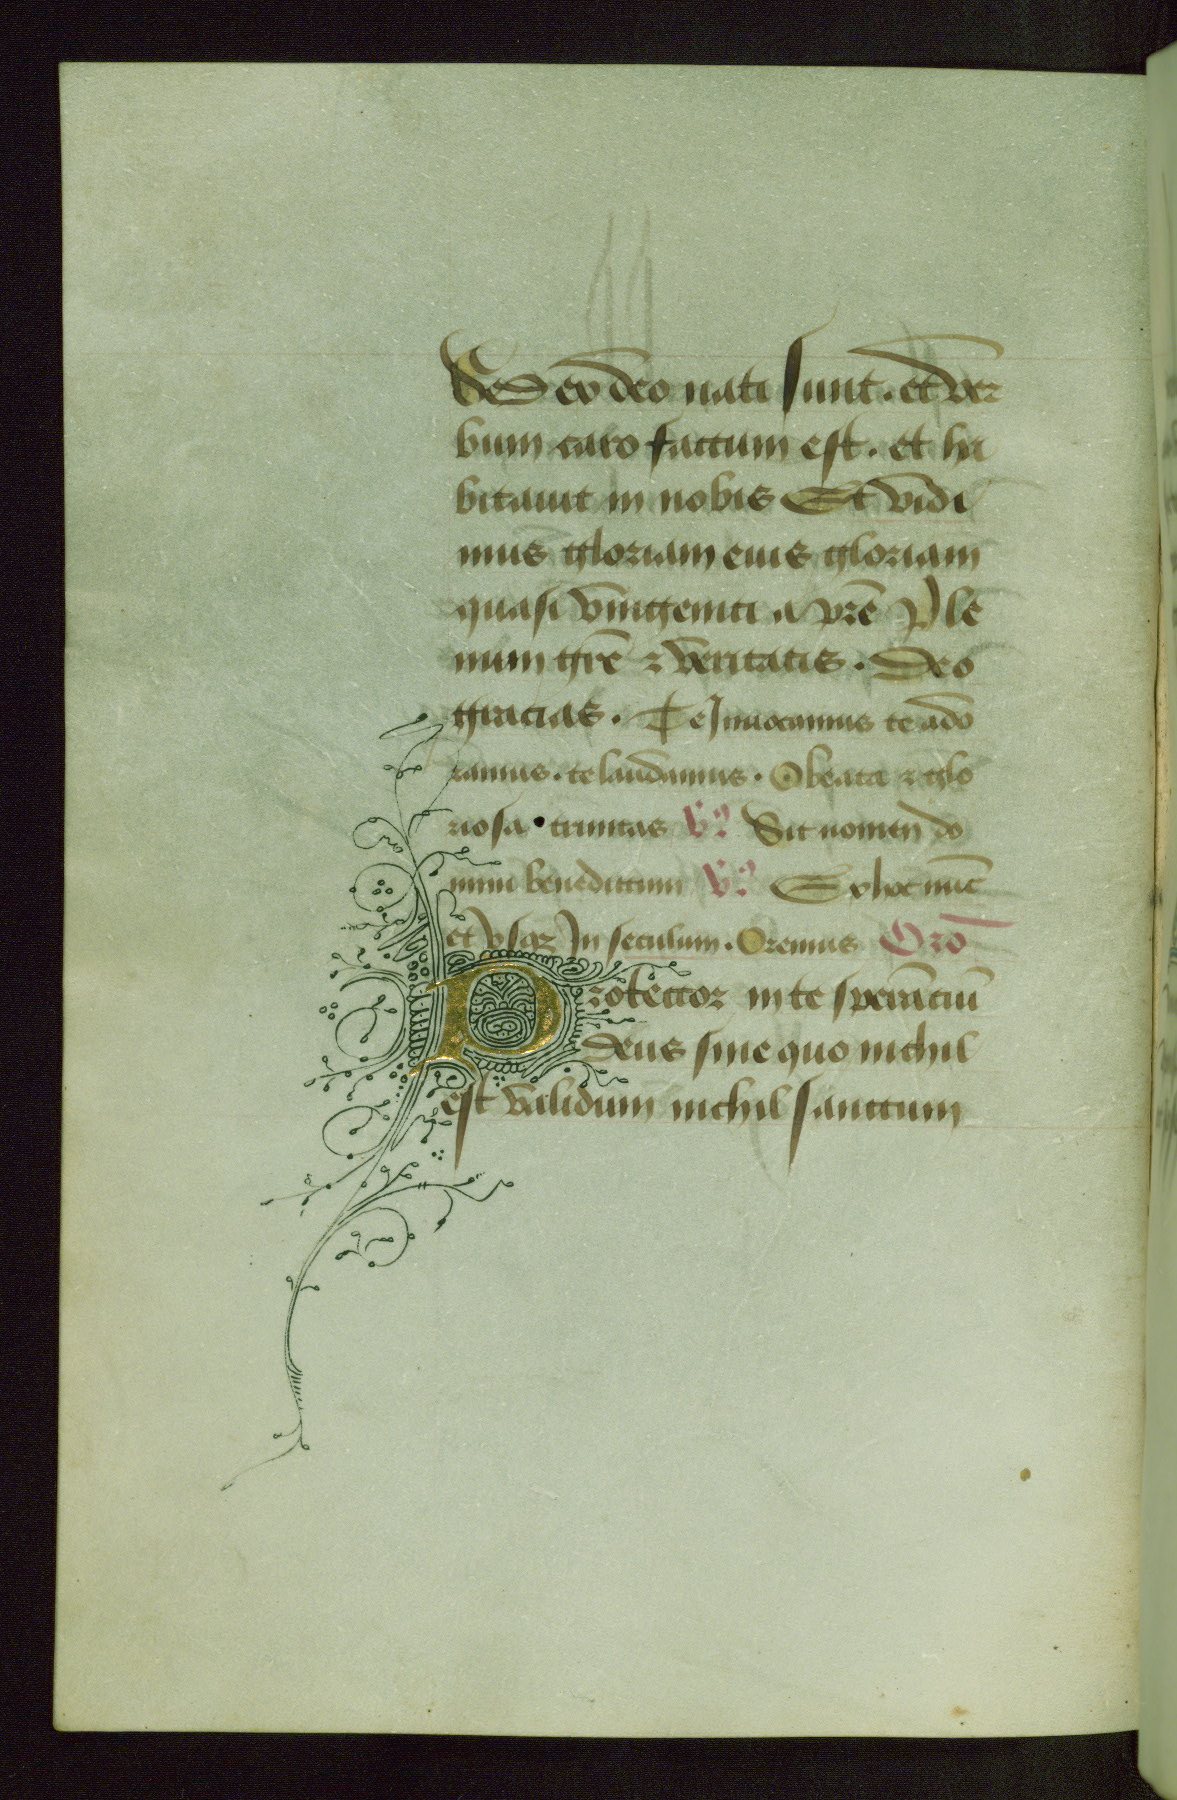 Sed ex deo nati sunt. et ver
bum caro factum est. et ha
bitauit in nobis Et vidi
mus gloriam eius gloriam
quasi vnigeniti a pr̄e Ple
num gr̄e ⁊ veritatis. Deo
gracias. Te Inuocamus te ado
ramus. te laudamus. O beata ⁊ glo
riosa trinitas Sit nomen do
mini benedictum Ex hoc nūc
et vsqꝫ In seculum. Oremus Oro̅
Protector in te sperāciū
deus sine quo nichil
est validum nichil sanctum